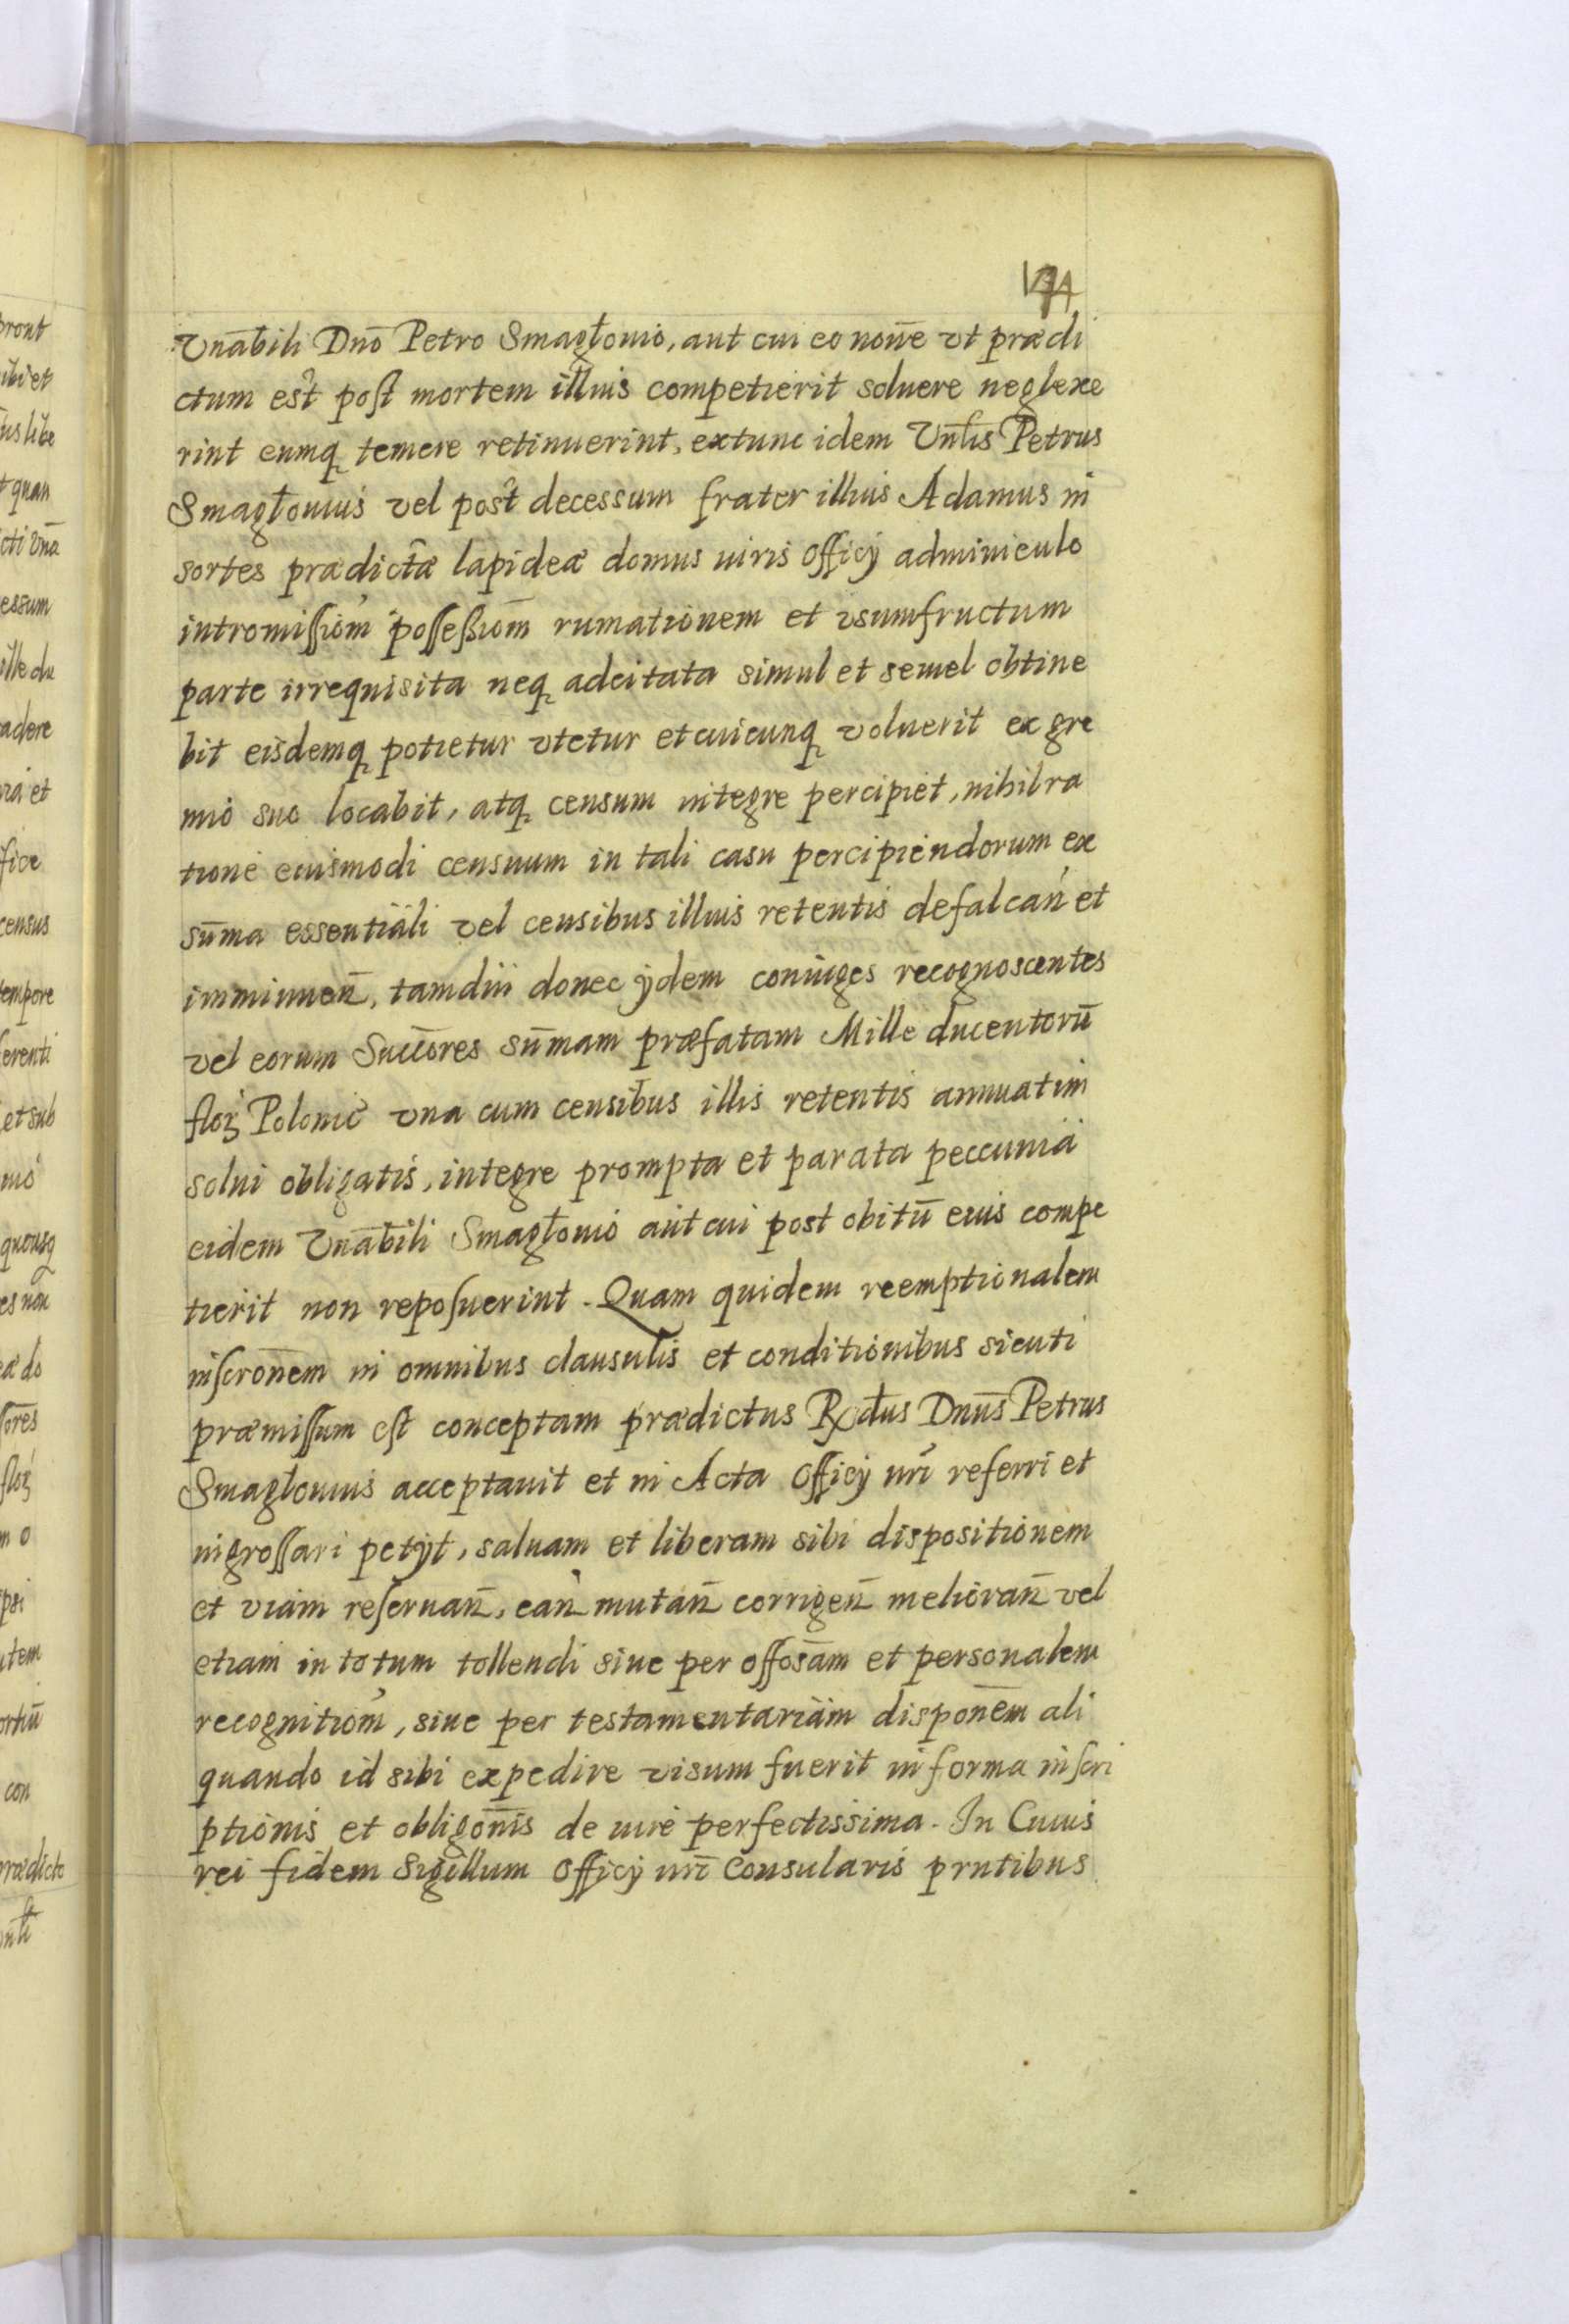 Vnābili Dno̅ Petro Smagłouio, aut cui eo noīe vt prædi
ctum est post mortem illius competierit soluere neglexe
rint eumq temere retinuerint, extunc idem Vnlis Petrus
Smagłouius vel post decessum frater illius Adamus in
sortes prædictæ lapideæ domus iuris Officij adminiculo
intromissiom possessiom rumationem et vsumfructum
parte irrequisita neq adcitata simul et semel obtine
bit eisdemq potietur vtetur et cuicunq voluerit ex gre
mio suo locabit, atq censum integre percipiet, nihil ra
tione eiusmodi censuum in tali casu percipiendorum ex
sum̄a essentiali vel censibus illius retentis defalcan et
imminuen̄, tamdiu donec ijdem coniuges recognoscentes
vel eorum Succōres sum̄am præfatam Mille ducentorū
florȝ Polonic vna cum censibus illis retentis annuatim
solui obligatis, integre prompta et parata peccunia
eidem Vnābili Smagłouio aut cui post obitū eius compe
tierit non reposuerint. Quam quidem reemptionalem
inscronēm in omnibus clausulis et conditionibus sicuti
præmissum est conceptam prædictus Rndus Dnus̄ Petrus
Smagłouius acceptauit et in Acta Officij nri̅ referri et
ingrossari petijt, saluam et liberam sibi dispositionem
et viam reseruan̄, ean mutan̄ corrigen̄ melioran̄ vel
etiam in totum tollendi siue per offosām et personalem
recognitiom, siue per testamentariam disponēm ali
quando id sibi expedire visum fuerit in forma inscri
ptionis et obligonīs de iure perfectissima. In Cuius
rei fidem Sigillum Officij nri̅ Consularis prntibus